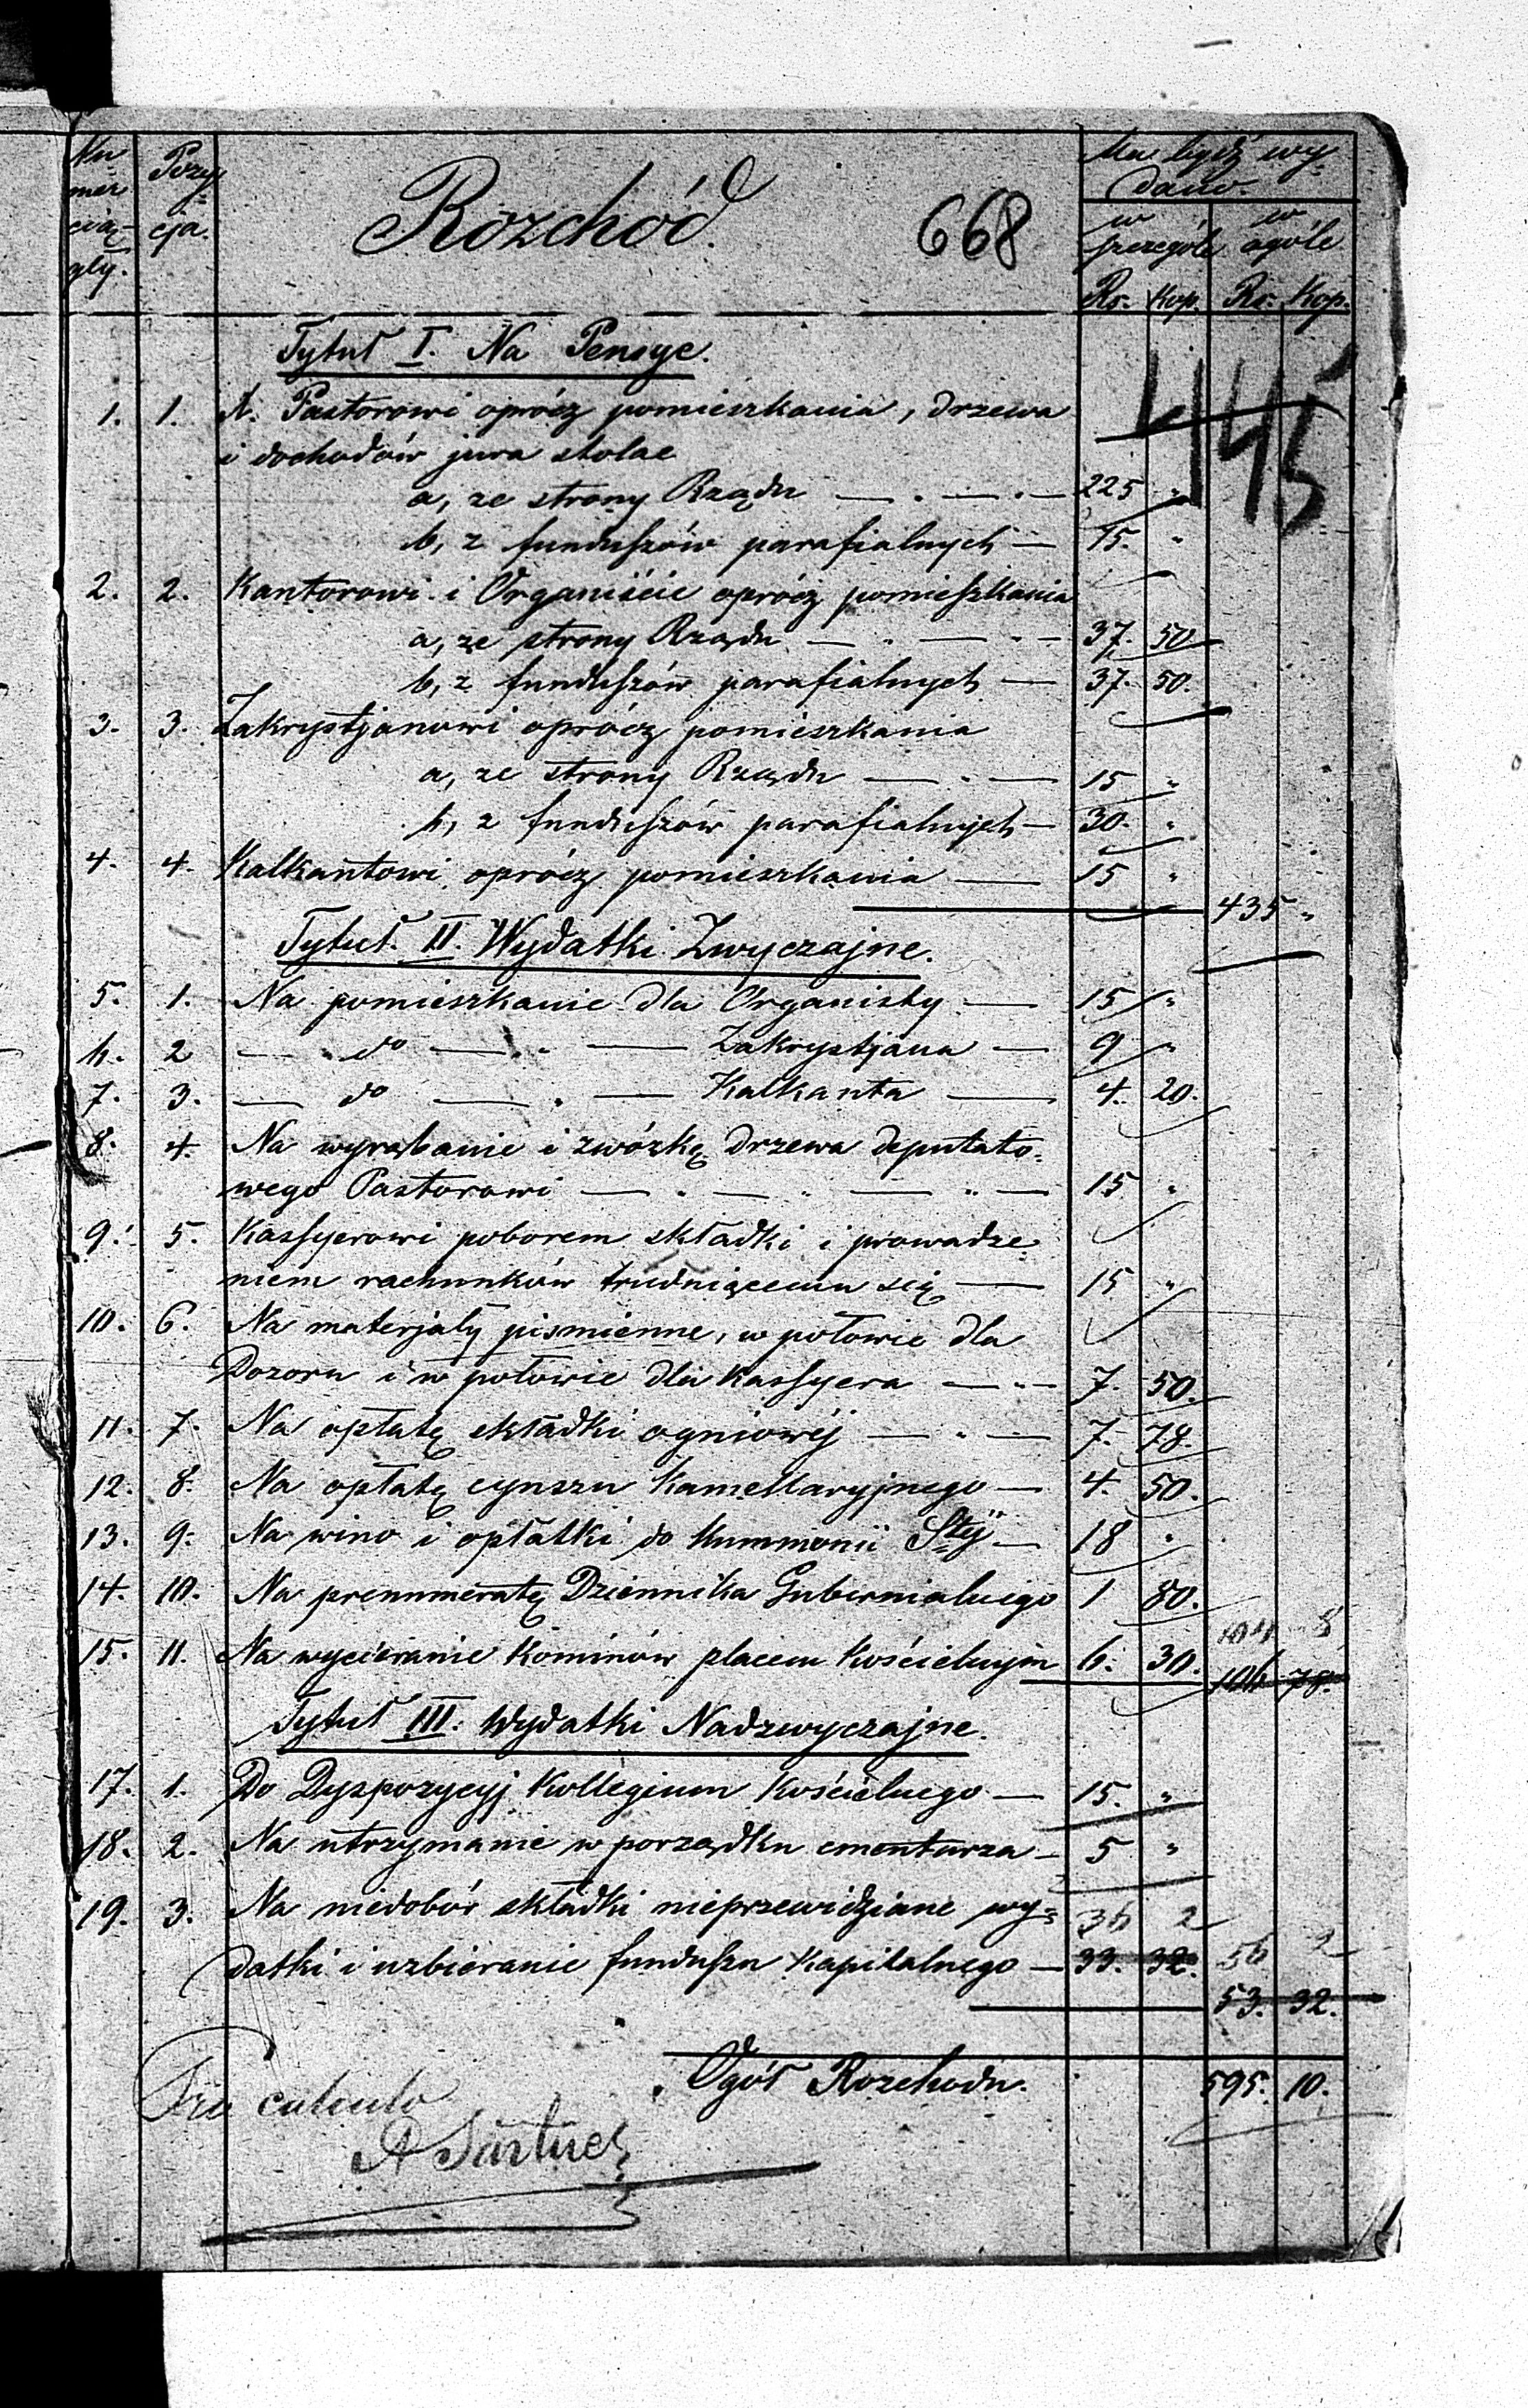 Numer ciągły.
Pozycja.
Rozchód.
668
Ma bydź wydano
w szczególe
w ogóle
Rs. Kop. Rs. Kop.
445
Tytuł I. Na Pensye.
1. 1. A. Pastorowi oprócz pomieszkania, drzewa
i dochodów jura stolae
a, ze strony Rządu — " — " — 225 "
b, z funduszów parafialnych — 75. "
2. 2. Kantorowi i Organiście oprócz pomieszkania
a, ze strony Rządu — " — " — 37. 50.
b, z funduszów parafialnych — 37. 50.
3. 3. Zakrystjanowi oprócz pomieszkania
a, ze strony Rządu — " — 15 "
b, z funduszów parafialnych — 30. "
4. 4. Kalkantowi oprócz pomieszkania — 15 "
435 "
Tytuł. II. Wydatki Zwyczajne.
5. 1. Na pomieszkanie dla Organisty — 15 "
6. 2 — " do — " — Zakrystjana — 9 "
7. 3. — do — " — Kalkanta — 4. 20.
8. 4. Na wyrąbanie i zwózkę drzewa deputato=
wego Pastorowi — " — " — " — 15 "
9. 5. Kassyerowi poborem składki i prowadze=
niem rachunków trudniącemu się — 15 "
10. 6. Na materjały pismienne, w połowie dla
Dozoru i w połowie dla Kassyera — " — 7. 50.
11. 7. Na opłatę składki ogniowéj — " — 7. 78.
12. 8. Na opłatę czynszu Kamellaryjnego — 4. 50.
13. 9. Na wino i opłatki do Kummonii Stéj — 18 "
14. 10. Na prenumeratę Dziennika Gubernialnego 1 80.
104 8
15. 11. Na wycieranie Kominów placem Kościelnym 6. 30. 106 78.
Tytuł III. Wydatki Nadzwyczajne.
17. 1. Do Dyspozycyj Kollegium Kościelnego — 15. "
18. 2. Na utrzymanie w porządku cmentarza — 5 "
19. 3. Na niedobór składki nieprzewidziane wy=
36 2
datki i uzbieranie funduszu Kapitalnego — 33. 32. 56 2
53. 32.
Ogół Rozchodu. 595. 10.
Pro calculo